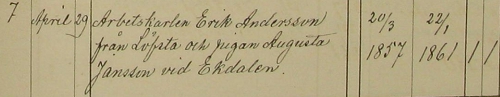 7 April 29 Arbetskarlen Erik Andersson 20/3 22/1
från Löfsta och pigan Augusta 1857 1861 1 1
Jansson vid Ekdalen.